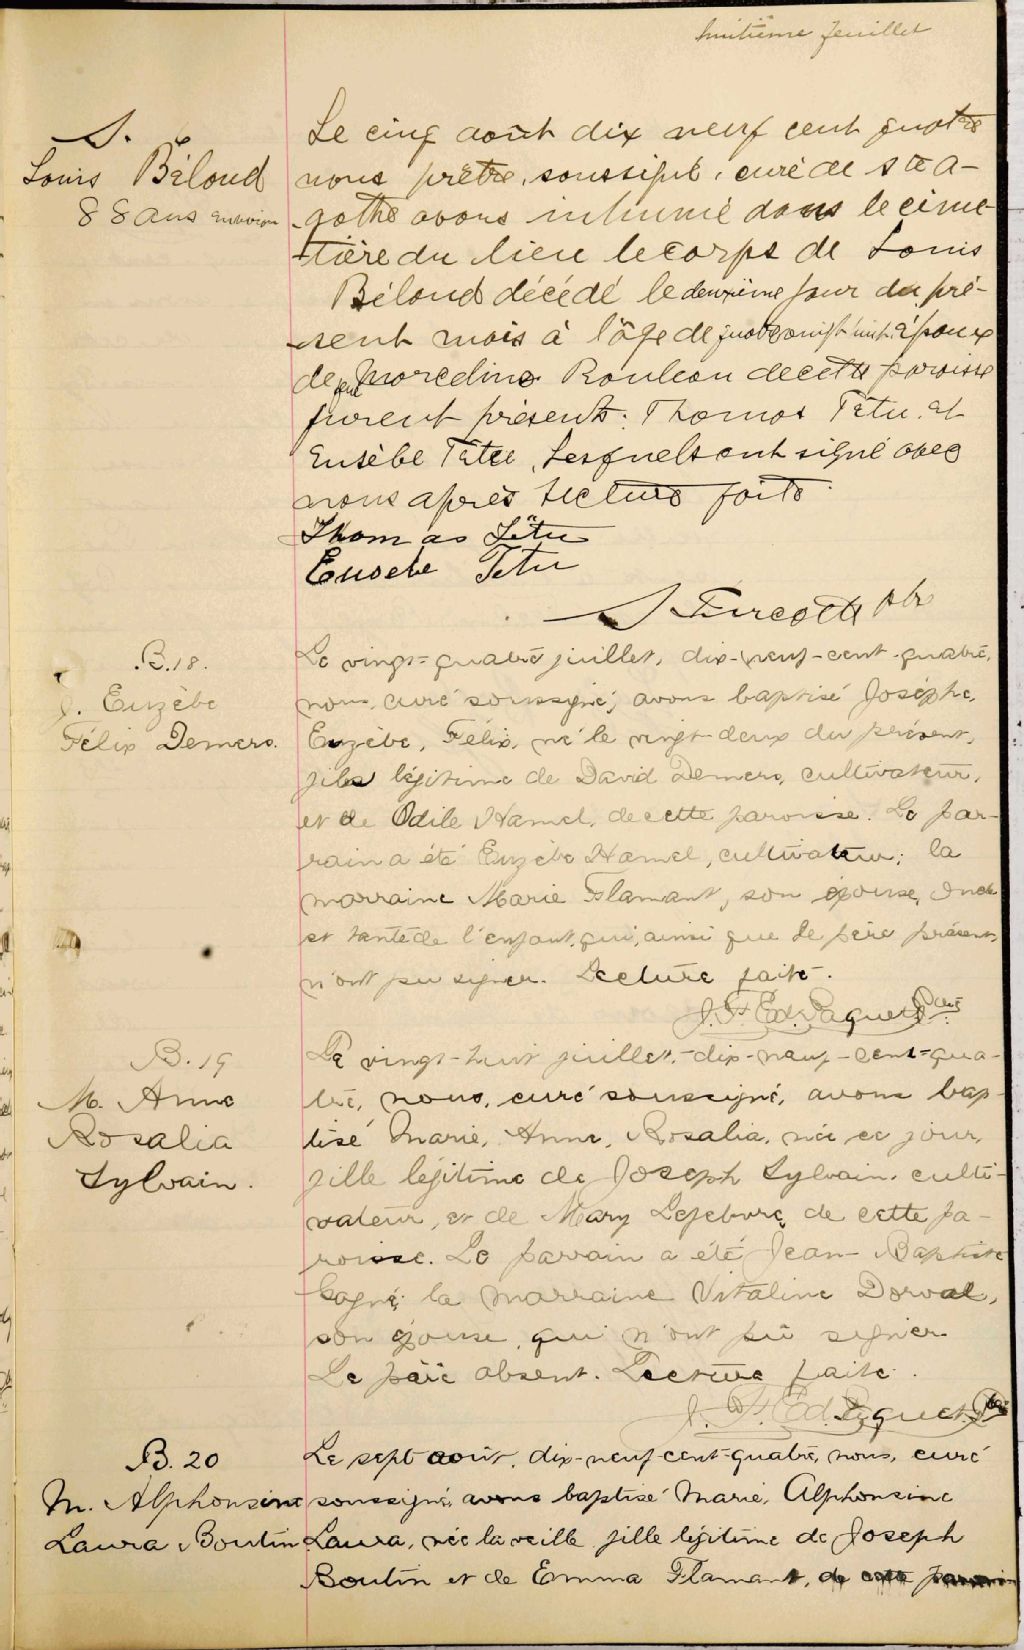 huitième feuillet
S.
Louis Béloud
88 ans environ
Le cinq août dix neuf cent quatre
nous prêtre, soussigné, curé de Ste A-
gathe avons inhumé dans le cime-
tière du lieu le corps de Louis
Béloud décédé le deuxième jour du pré-
sent mois à l'âge de quatrevingt huit époux
de feu Marcelline Rouleau de cette paroisse
furent présents: Thomas Tètu et
Eusèbe Tètu, Lesquels ont signé avec
nous après lecture faite.
Thomas Tètu
Eusebe Tetu
S Turcotte ptr
B. 18.
J. Euzèbe
Félix Demers.
Le vingt-quatre juillet, dix-neuf-cent-quatre,
nous, curé soussigné, avons baptisé Josèphe,
Euzèbe, Félix, né le vingt-deux du présent,
fils légitime de David Demers, cultivateur,
et de Odile Hamel, de cette paroisse. Le par-
rain a été Euzèbe Hamel, cultivateur; la
marraine Marie Flamant, son épouse, oncle
et tante de l'enfant, qui, ainsi que le père présent,
n'ont pu signer. Lecture faite.
J. F. Ed. Paquet Ptre
B. 19
M. Anne
Rosalia
Sylvain.
Le vingt-huit juillet,-dix-neuf-cent-qua-
tre, nous, curé soussigné, avons bap-
tisé Marie, Anne, Rosalia, née ce jour,
fille légitime de Joseph Sylvain, culti-
vateur, et de Mary Lefebvre, de cette pa-
roisse. Le parrain a été Jean-Baptiste
Gagné; la marraine Vitaline Dorval,
son épouse, qui n'ont pû signer.
Le père absent. Lecture faite.
J. F. Ed. Paquet, Ptre
B. 20
M. Alphonsine
Laura Boutin
Le sept août, dix-neuf-cent-quatre, nous, curé
soussigné, avons baptisé Marie, Alphonsine
Laura, née la veille fille légitime de Joseph
Boutin et de Emma Flamant, de cette paroisse